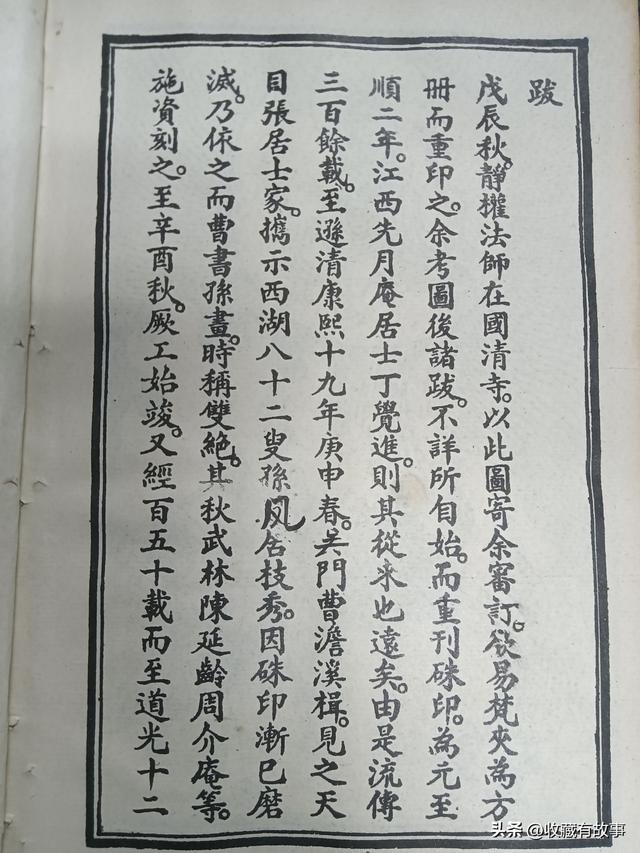 跋
戊辰秋。靜權法師在國清寺。以此圖寄余審訂。欲易梵夾為方
冊而重印之。余考圖後諸跋。不詳所自始。而重刊硃印。為元至
順二年。江西先月庵居士丁覺進。則其從来也遠矣。由是流傳
三百餘載。至遜清康熙十九年庚申春。吳門曹澹溪楫。見之天
目張居士家。攜示西湖八十二叟孫夙居枝秀。因硃印漸已磨
滅。乃依之而曹書孫畫。時稱雙絶。其秋武林陳延齡周介庵等。
施資刻之。至辛酉秋。厥工始竣。又經百五十載而至道光十二
头条 @收藏有故事